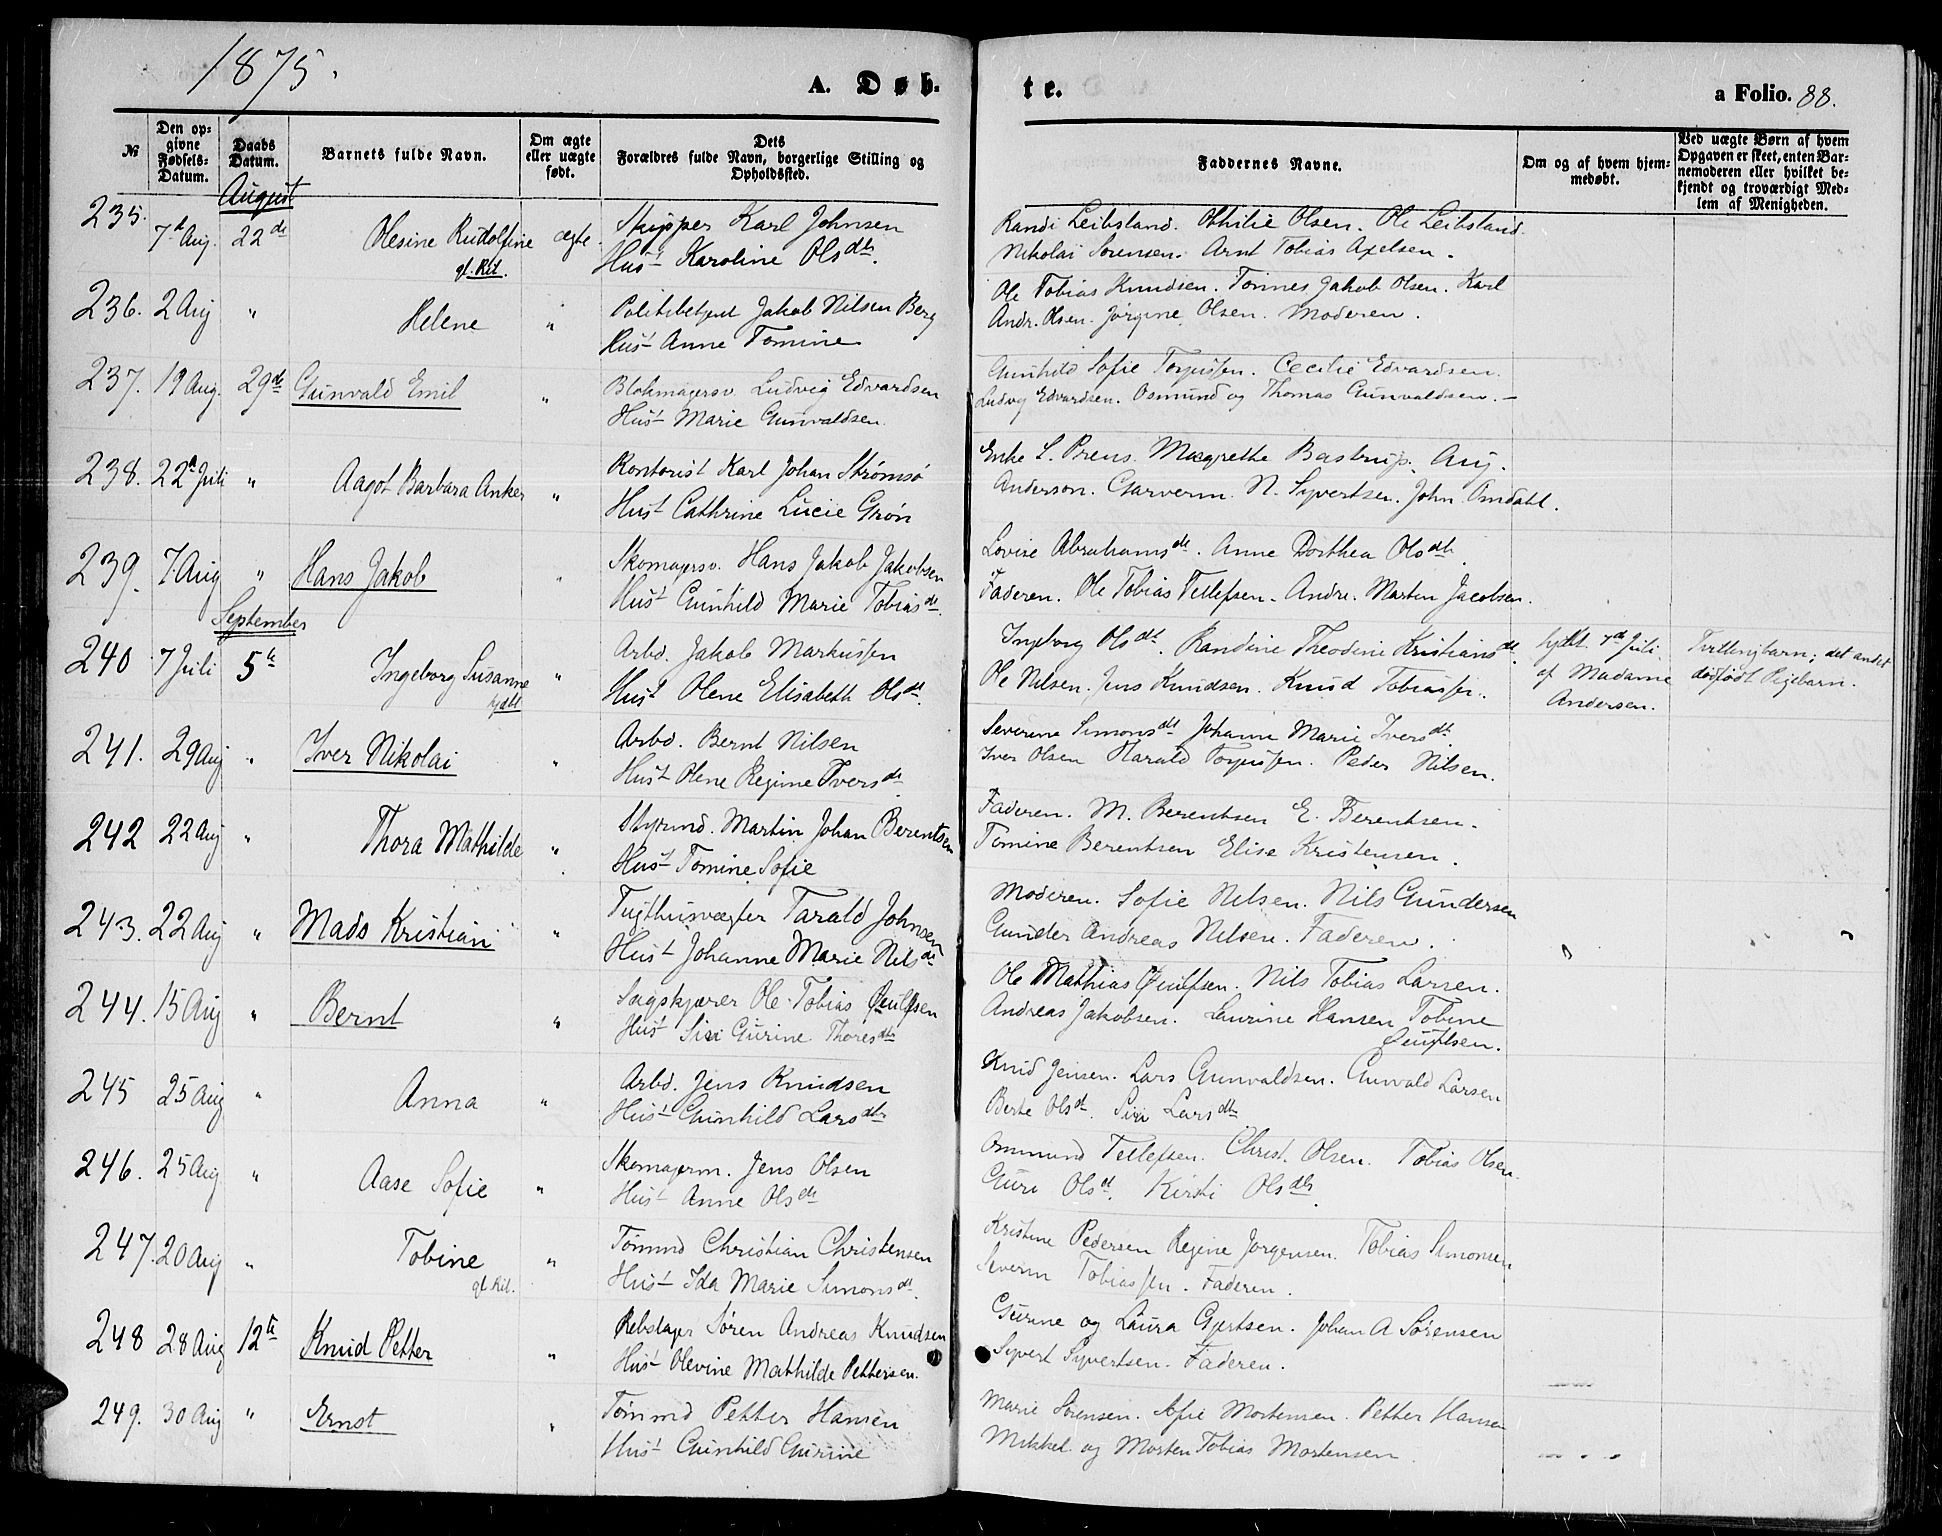 1875.
A. Døb-
te.
a Folio. 88.
№
Den op-
givne
Fødsels-
Datum.
Daabs
Datum.
Barnets fulde Navn.
Om ægte
eller uægte
født.
Dets
Forældres fulde Navn, borgerlige Stilling og
Opholdssted.
Faddernes Navne.
Om og af hvem hjem-
medøbt.
Ved uægte Børn af hvem
Opgaven er skeet, enten Bar-
nemoderen eller hvilket be-
kjendt og troværdigt Med-
lem af Menigheden.
August
235. 7de Aug. 22de Olesine Rudolfine ægte. Skipper Karl Johnsen Randi Leibsland. Othilie Olsen. Ole Leibsland.
gl. Rit. Hust Karoline Olsdtr. Nikolai Sørensen. Arnt Tobias Axelsen.
236. 2 Aug " Helene " Politibetjent Jakob Nilsen Berg Ole Tobias Knudsen. Tønnes Jakob Olsen. Karl
Hust Anne Tomine Andr. Olsen. Jørgine Olsen. Moderen.
237. 19 Aug. 29de Gunvald Emil " Blokmagersv. Ludvig Edvardsen Gunhild Sofie Torjussen. Cecilie Edvardsen.
Hust Marie Gunvaldsen. Ludvg Edvardsen. Osmund og Thomas Gunvaldsen. –
238. 22de Juli " Aagot Barbara Anker " Kontorist Karl Johan Strømsø Enke S. Preus. Magrethe Bastrup. Aug.
Hust Cathrine Lucie Grøn Anderson. Garverm. N. Syvertsen. John Omdahl.
239. 7. Aug " Hans Jakob " Skomagersv. Hans Jakob Jakobsen Lovise Abrahamsdt. Anne Dorthea Olsdtr.
Hust Gunhild Marie Tobiasdt. Faderen. Ole Tobias Tellefsen. Andr. Martin Jacobsen.
September
240 7 Juli 5te Ingeborg Susanne " Arbd. Jakob Markussen Ingeborg Olsdt. Randine Theodine Kristiansdt. hjdbt. 7de Juli. Tvillingbarn; det andet
hjdbt Hust Olene Elisabeth Olsdt. Ole Nilsen. Jens Knudsen. Knud Tobiassen. af Madame dødfødt Pigebarn.
Andersen.
241. 29 Aug " Iver Nikolai " Arbd. Bernt Nilsen Severine Simonsdt Johanne Marie Iversdt.
Hust Olene Regine Iversdt. Iver Olsen Harald Torjussen. Peder Nilsen.
242 22 Aug " Thora Mathilde " Styrmd. Martin Johan Berentsen Faderen. M. Berentsen E. Berentsen.
Hust Tomine Sofie Tomine Berentsen Elise Kristensen.
243. 22 Aug " Mads Kristian " Tugthusvægter Tarald Johnsen Moderen. Sofie Nilsen. Nils Gundersen
Hust Johanne Marie Nilsdt Gunder Andreas Nilsen. Faderen.
244. 15 Aug " Bernt " Sagskjærer Ole Tobias Øuulfsen Ole Mathias Øuulfsen. Nils Tobias Larsen.
Hust Siri Gurine Thoresdtr Andreas Jakobsen. Laurine Hansen Tobine
Øuulfsen.
245 25 Aug " Anna " Arbd. Jens Knudsen Knud Jensen. Lars Gunvaldsen. Gunvald Larsen
Hust Gunhild Larsdtr Berte Olsdt. Siri Larsdtr
246. 25 Aug " Aase Sofie " Skomagerm. Jens Olsen Ommund Tellefsen. Christ. Olsen. Tobias Olsen.
Hust Anne Olsdtr Guro Olsdt. Kirsti Olsdtr
247. 20 Aug " Tobine " Tømmd Christian Christensen Kristine Pedersen Regine Jørgensen. Tobias Simonsen
gl. Rit. Hust Ida Marie Simonsdt. Severin Tobiassen. Faderen.
248 28 Aug 12te Knud Petter " Rebslager Søren Andreas Knudsen Gurine og Laura Gjertsen. Johan A Sørensen
Hust Olevine Mathilde Pettersen. Syvert Syvertsen. Faderen.
249. 30 Aug " Ernst " Tømmd Petter Hansen Marie Sørensen. Sofie Mortensen. Petter Hansen
Hust Gunhild Gurine Mikkel og Morten Tobias Mortensen